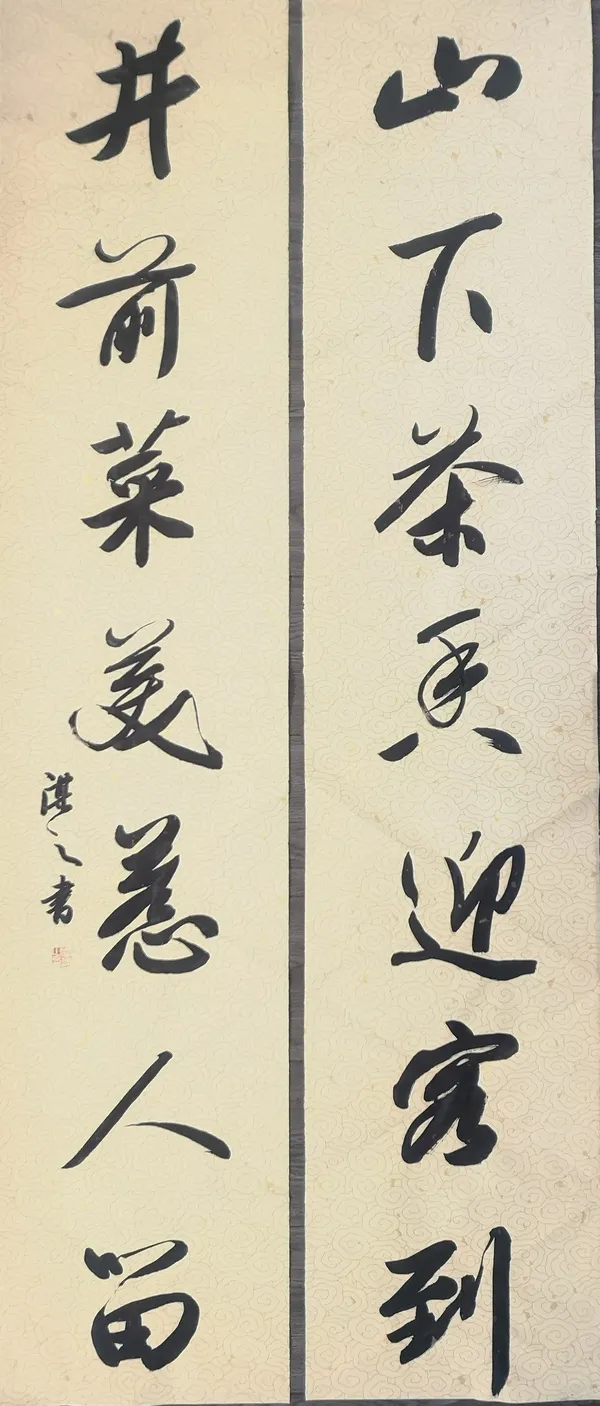 山下茶香迎客到
井前菜美惹人留
湛之書